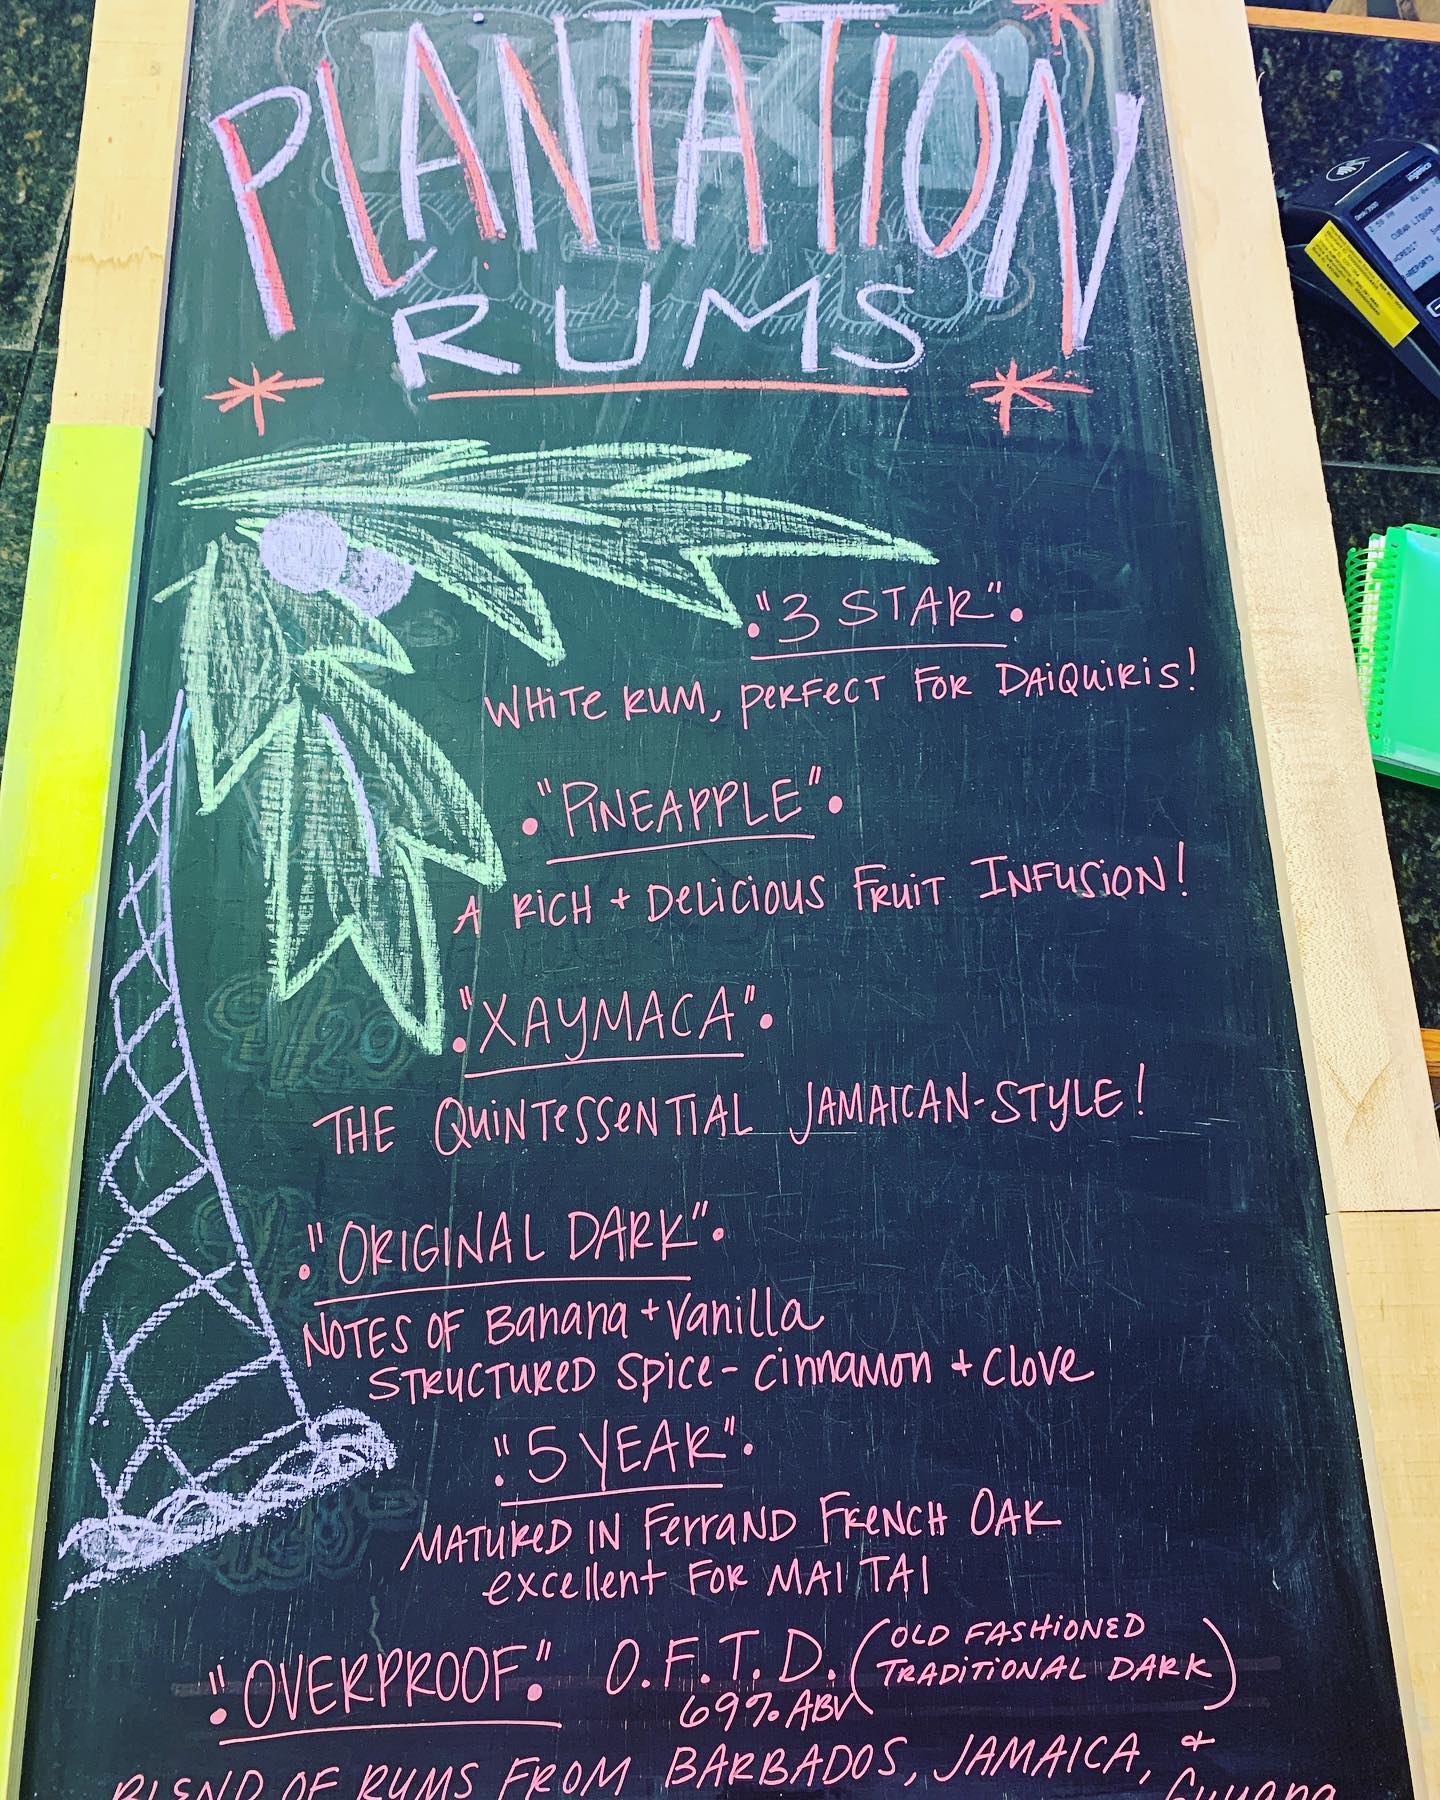 PLANTATION
RUMS
"3 STAR"
WHITE RUM, PERFECT FOR DAIQUIRIS!
"PINEAPPLE"
A RICH + DELICIOUS FRUIT INFUSION!
"XAYMACA"
THE QUINTESSENTIAL JAMAICAN-STYLE!
"ORIGINAL DARK"
NOTES OF Banana + Vanilla
STRUCTURED SPICE - Cinnamon + Clove
"5 YEAR"
MATURED IN FERRAND FRENCH OAK
excellent FOR MAI TAI
"OVERPROOF" O.F.T.D. (OLD FASHIONED
TRADITIONAL DARK)
69% ABV
BLEND OF RUMS FROM BARBADOS, JAMAICA, &
Guyana
9/20
ingenico
CUBAN LIQUOR
CREDIT
REPORTS